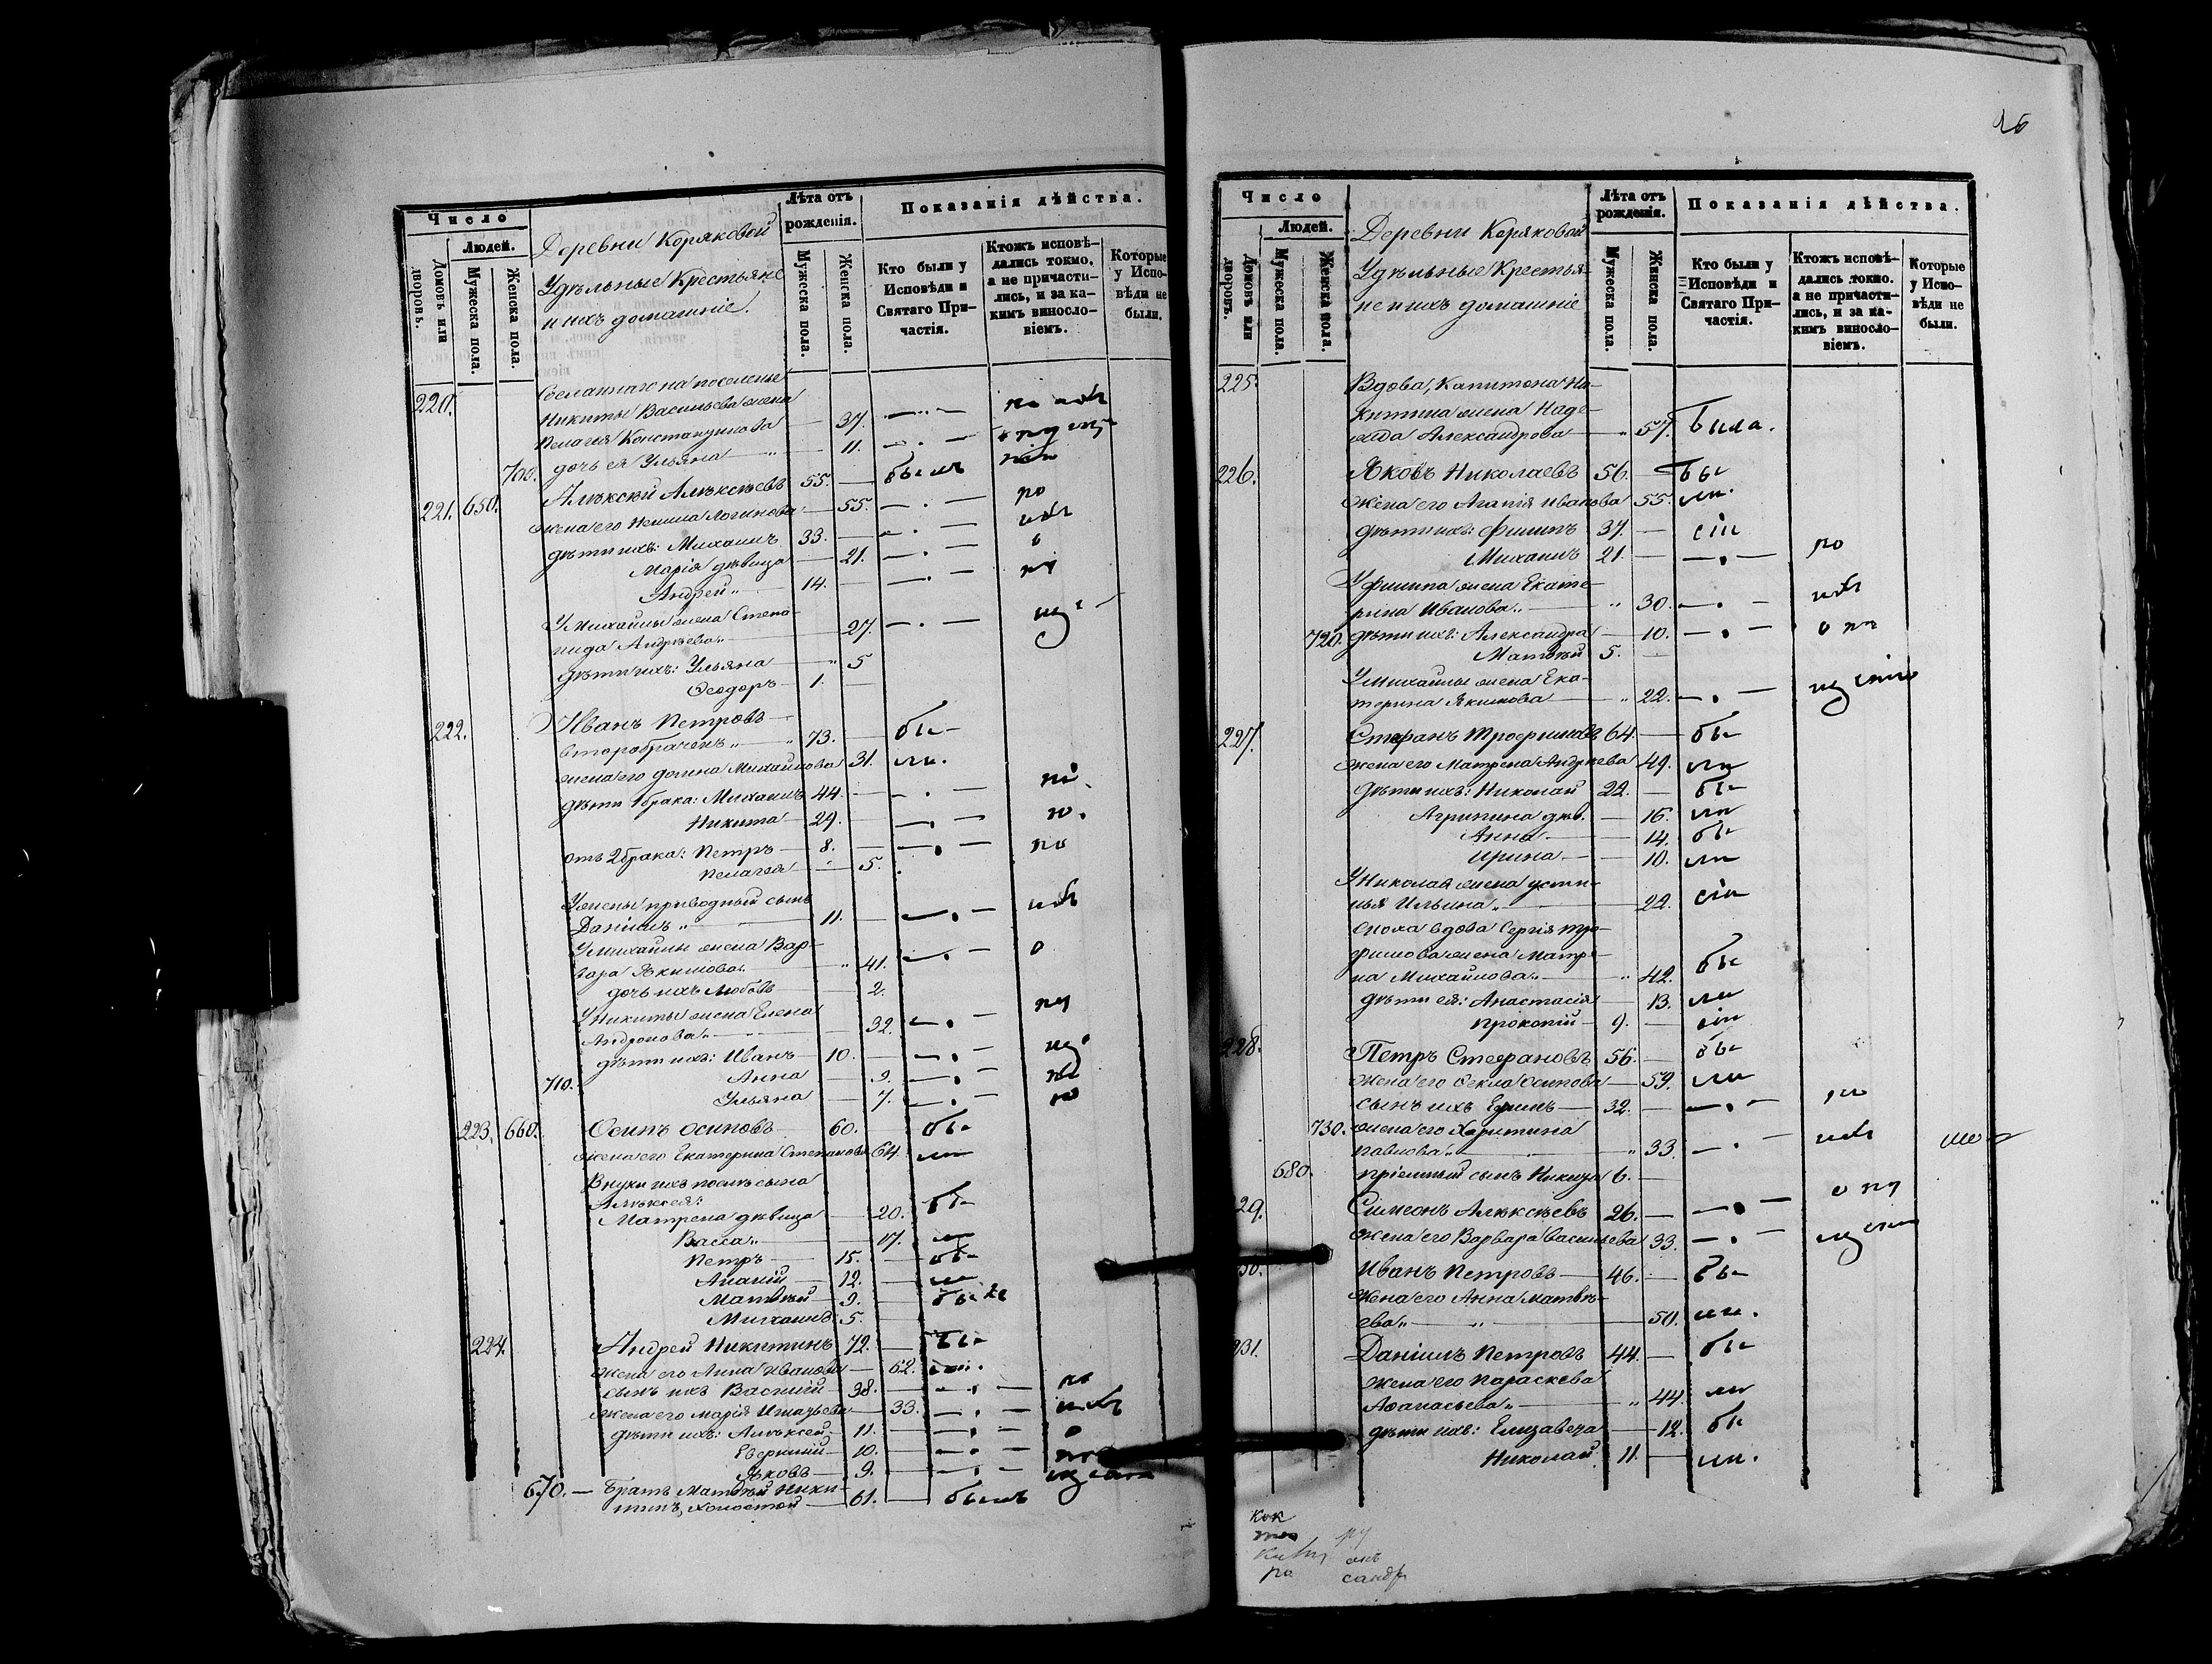 Число
Людей.
Домовъ или дворовъ.
Мужеска пола.
Женска пола.
Деревни Коряковой
Удѣльные Крестьяне
и ихъ домашніе.
Лѣта отъ рожденія.
Мужеска пола.
Женска пола.
Показанія дѣйства.
Кто были у Исповѣди и Святаго Причастія.
Ктожъ исповѣдались токмо, а не причастились, и за какимъ винословіемъ.
Которые у Исповѣди не были.
220. Сосланнаго на поселенье
Никиты Васильева жена
Пелагея Константинова — 37. — " — по небт
700. дочь ея Ульяна " — 11. — . —
221. 650. Алексѣй Алексѣевъ 55. — былъ
жена его Ненила Логинова — 55. — . — по
дѣти ихъ: Михаилъ 33. — . —
Марія дѣвица — 21. — . — о
Андрей " 14. — . —
У Михаилы жена Степа-
нида Андреева " — 27. — . —
дѣти ихъ: Ульяна — " 5
Ѳеодоръ — 1. —
222. Иванъ Петровъ —
второбраченъ " — 73. — бы-
жена его Домна Михайлова 31. ли.
дѣти 1 брака: Михаилъ 44. —
Никита — 29. — . —
отъ 2 брака: Петръ — 8. — . — по
Пелагея — 5.
У жены приводный сынъ
Даніилъ " — 11. — . —
У Михаилы жена Вар-
вара Якимова " — " 41. — . — о
дочь ихъ Любовь — 2.
У Никиты жена Елена
Андронова " — 32. — . —
дѣти ихъ: Иванъ — 10. — . —
710. Анна — 9. — . —
Ульяна — 7. — . —
223. 660. Осипъ Осиповъ 60. — бы-
жена его Екатерина Степанова 64. ли
Внуки ихъ послѣ сына
Алексѣя:
Матрена дѣвица — 20. бы-
Васса " — 17. ли
Петръ — 15. — бы-
Ананій — 12. — ли
Матвѣй — 9. — бы-
Михаилъ 5.
224. Андрей Никитинъ 72. — бы-
жена его Анна Иванова — 62. ли.
сынъ ихъ Василій — 38. — . —
жена его Марія Игнатьева — 33. — . —
дѣти ихъ: Алексѣй 11. — . — о
Еверкній — 10. — . —
Яковъ — 9. — . —
670. — братъ Матвѣй Ники-
тинъ, холостой — 61. — былъ
26
Число
Людей.
Домовъ или дворовъ.
Мужеска пола.
Женска пола.
Деревни Коряковой
Удѣльные Крестья-
не и ихъ домашніе
Лѣта отъ рожденія.
Мужеска пола.
Женска пола.
Показанія дѣйства.
Кто были у Исповѣди и Святаго Причастія.
Ктожъ исповѣдались токмо. а не причастились, и за какимъ винословіемъ.
Которые у Исповѣди не были.
225. Вдова, Капитона Ни-
китина жена Наде-
жда Александрова — " 57. была.
226. Яковъ Николаевъ 56. — бы-
жена его Агапія Иванова 55. ли.
дѣти ихъ: Филипъ 37. — сіи
Михаилъ 21. — . — по
У Филипа жена Екате-
рина Иванова " — " 30. — . —
720. дѣти ихъ: Александра — 10. — . —
Матвѣй 5. —
У Михаилы жена Ека-
терина Якимова — " 22. — . —
227. Стефанъ Трофимовъ 64. — бы-
жена его Матрена Андреева 49. ли
дѣти ихъ: Николай 22. — бы-
Агрипина дѣв. — 16. ли
Анна — 14. бы-
Ирина — 10. ли
У Николая жена Усти-
нья Ильина " — 22. сіи
сноха вдова Сергія Тро-
фимова жена Матре-
на Михайлова " — " 42. бы-
дѣти ея: Анастасія — 13. ли
Прокопій — 9. — сіи
228. Петръ Стефановъ 56. — бы-
жена его Ѳекла Осипова — 59. ли
сынъ ихъ Ефимъ — 32. — . — по
730. жена его Харитина
Павлова " — " 33. — . —
680. пріемный сынъ Никита 6. —
29. Симеонъ Алексѣевъ 26. — . —
жена его Варвара Васильева 33. — . —
30. Иванъ Петровъ — 46. — бы-
жена его Анна Матвѣ-
ева " — " — 50. ли.
231. Даніилъ Петровъ 44. — бы-
жена его Параскева
Аѳанасьева " — " 44. ли
дѣти ихъ: Елизавета — 12. бы-
Николай 11. — ли.
кок
ра
ру
санд